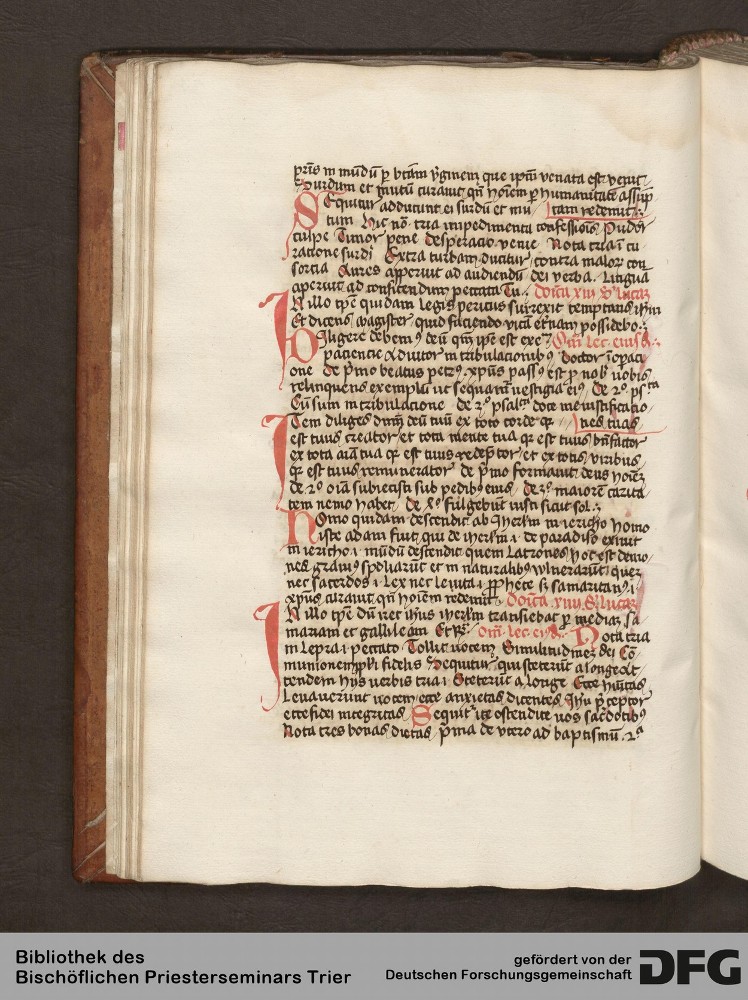 pris in mūdū p btām v̄ginem que ip̄m venata est venit
Surdum et mutū curauit qn̄ hoīem p humanitatē assūp
Sequitur adducunt ei surdū et mu tam redemit
tum Hic nō tria impedimenta confessiōis Pudor
culpe Timor pene desperacio venie Nota tria ī cu
ratione surdi Extra turbam ducitur contra malor con
sorcia Aures apperuit ad audiendū dei verba Lingua
aperuit ad confitendum peccata Dōica xiii S Lucaꝫ
In illo tp̄e quidam legis peritus surrexit temptans
Et dicens magister quid faciendo vitā et̄nam possidebo
Diligere debemꝰ deū qm̄ ipse est Om̄ lec eiusd
paciencie adiutor in tribulacionibꝰ doctor
one de p̄mo beatus petrꝰ xp̄us passꝰ est p nob vobis
relinquens exemplū ut sequamī vestigia eiꝰ de 2º ps
Cū sum in tribulacione de 3º doce me iustificatio
Item diliges dn̄m deū tuū ex toto corde qꝛ nes tuas
est tuus creator et tota mente tua qꝛ est tuus bn̄factor
ex tota aīa tua qꝛ est tuus redēptor et ex totis viribus
qꝛ est tuus remunerator de p̄mo formauit deus hoīeꝫ
de 2º oīa subiecisti sub pedibꝰ eius de 3º maiorē carita
tem nemo habet de fulgebūt iusti sicut sol
Homo quidam descendit ab Iherlm in iericho homo
iste adam fuit qui de iherlm i de paradiso exiuit
in iericho i mūdū descendit quem Latrones hoc est demo
nes spoliarūt et in naturalibꝰ wlnerarūt queꝫ
nec sacerdos i Lex nec leuita i pphete sꝫ samaritanꝰ i
xp̄us curauit qn̄ hoīem redemit Dōica xiiii S Lucaꝫ
In illo tp̄e dū iret ihūs iherlm transiebat p mediaꝫ sa
mariam et galileam Et Om̄ lec eiusd Nota tria
in Lepra i peccato Tollit uocem Similitudineꝫ dei Cō
munionem fidelis Sequitur qui steterūt a longe
tendem hijs verbis tria Steterūt a longe Ecce
Leuauerunt uocem ecce anxietas dicentes Ihū p̄ceptor
ecce fidei integritas Sequitꝛ ite ostendite uos sacdotibꝰ
Nota tres bonas dietas p̄ma de vtero ad baptismū 2ª
Bibliothek des
Bischöflichen Priesterseminars Trier
gefördert von der
Deutschen Forschungsgemeinschaft
DFG